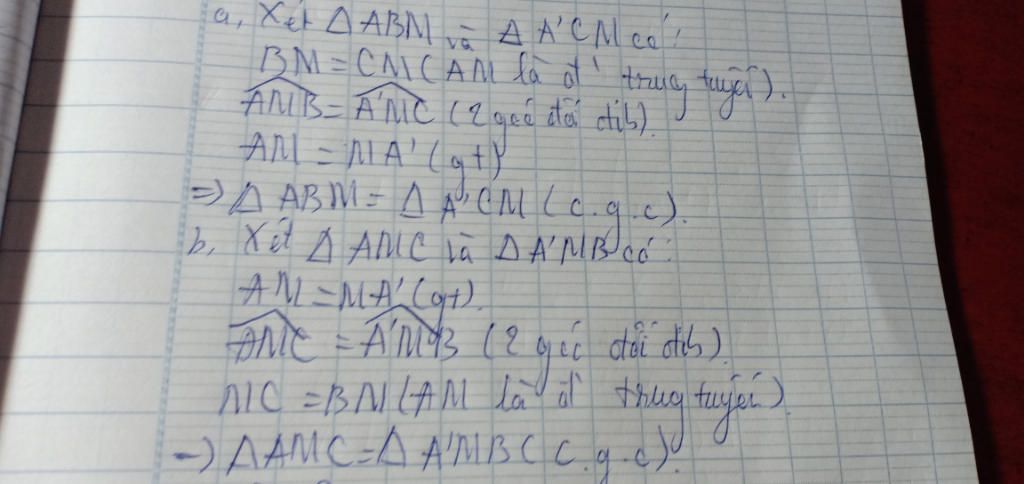 a, Xét Δ ABM và Δ A'CM có:
BM = CM (AM là đ' trung tuyến).
AMB = A'MC (2 góc đối đỉnh).
AM = MA' (gt)
=> Δ ABM = Δ A'CM (c.g.c).
b, Xét Δ AMC và Δ A'MB có:
AM = MA' (gt).
AMC = A'MB (2 góc đối đỉnh).
MC = BM (AM là đ' trung tuyến)
-> Δ AMC = Δ A'MB (c.g.c).